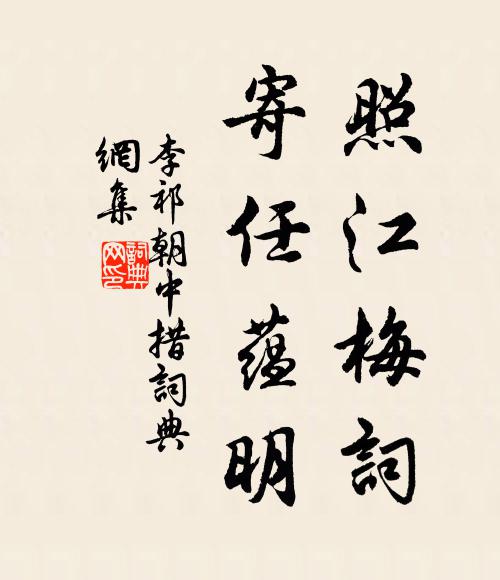 照江梅詞
寄任蘊明
李祁朝中措詞典
網集
詞典
网印